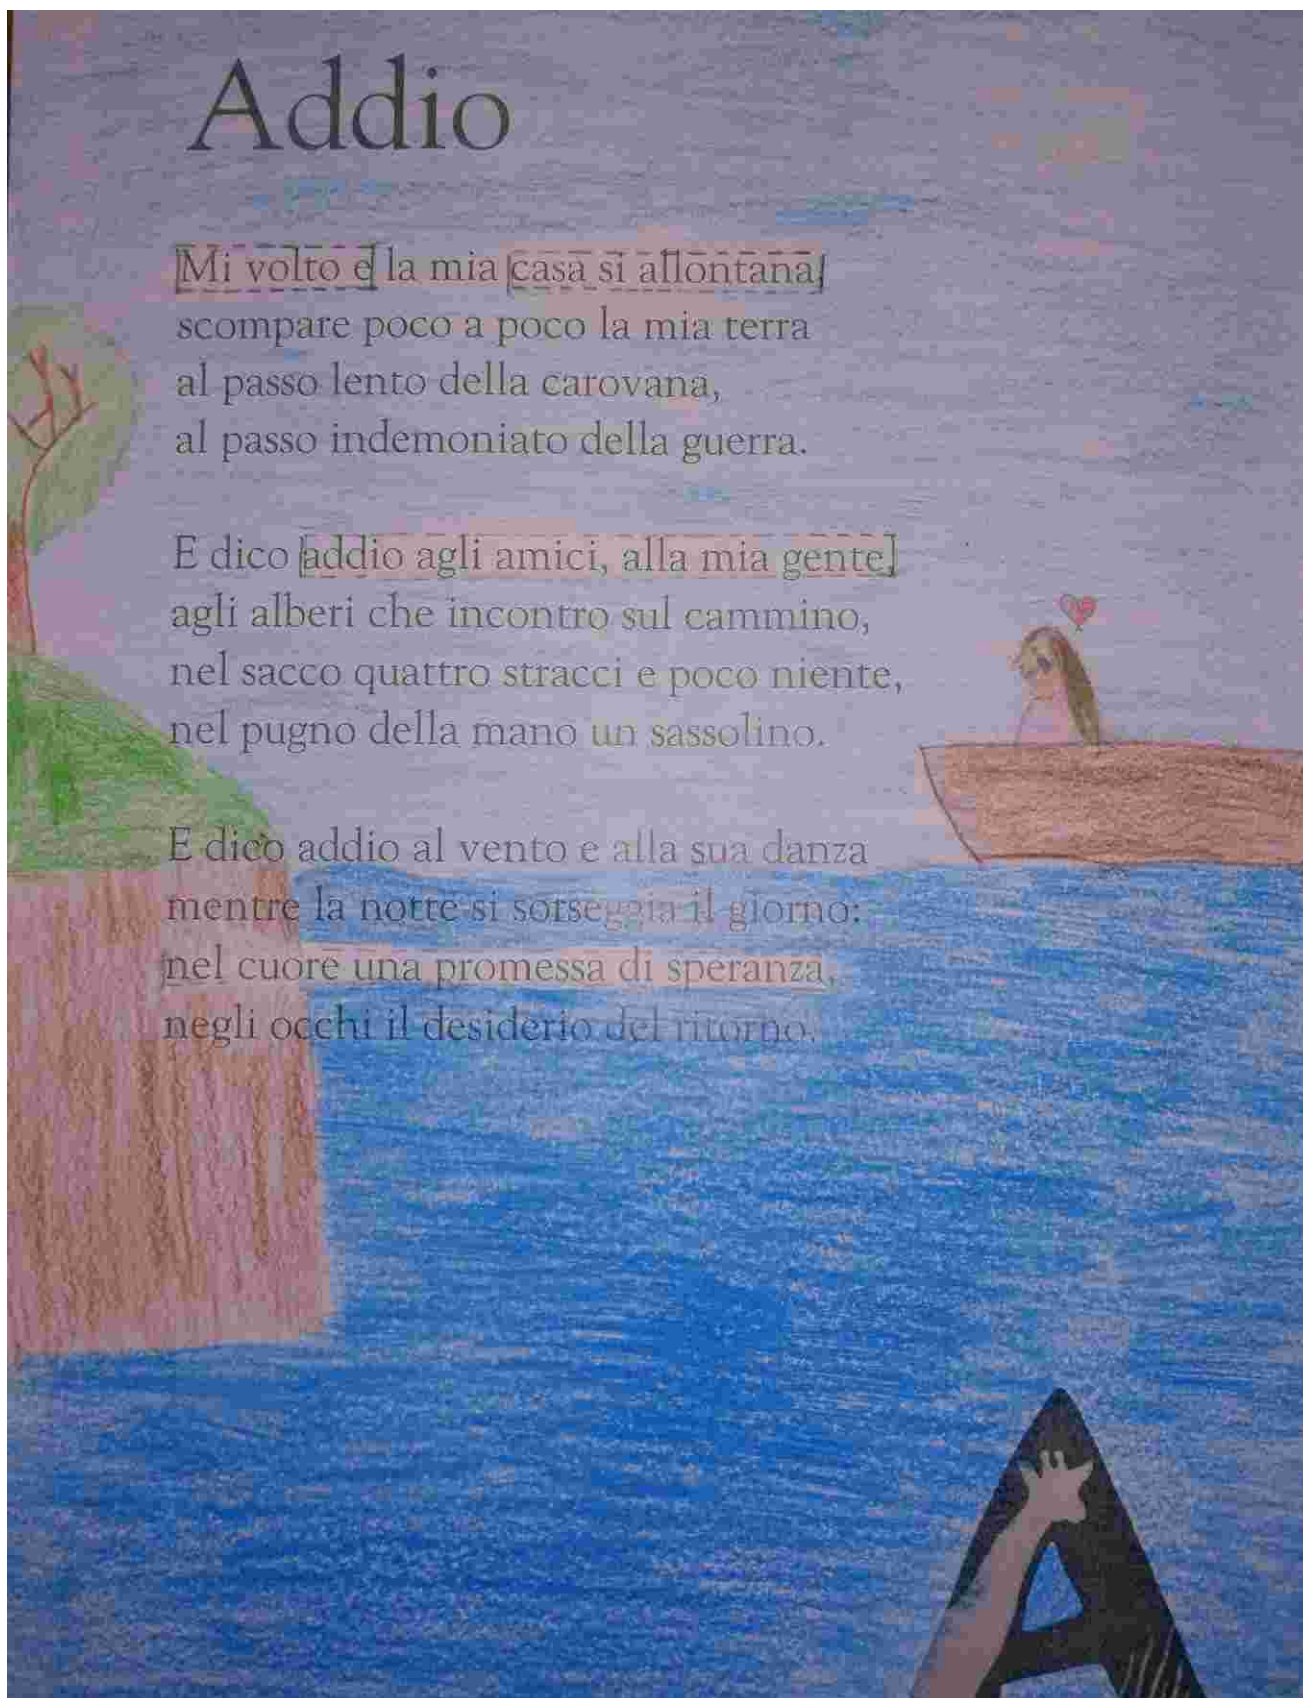 Addio
Mi volto e la mia casa si allontana,
scompare poco a poco la mia terra
al passo lento della carovana,
al passo indemoniato della guerra.
E dico addio agli amici, alla mia gente,
agli alberi che incontro sul cammino,
nel sacco quattro stracci e poco niente,
nel pugno della mano un sassolino.
E dico addio al vento e alla sua danza
mentre la notte si sorseggia il giorno:
nel cuore una promessa di speranza,
negli occhi il desiderio del ritorno.
A